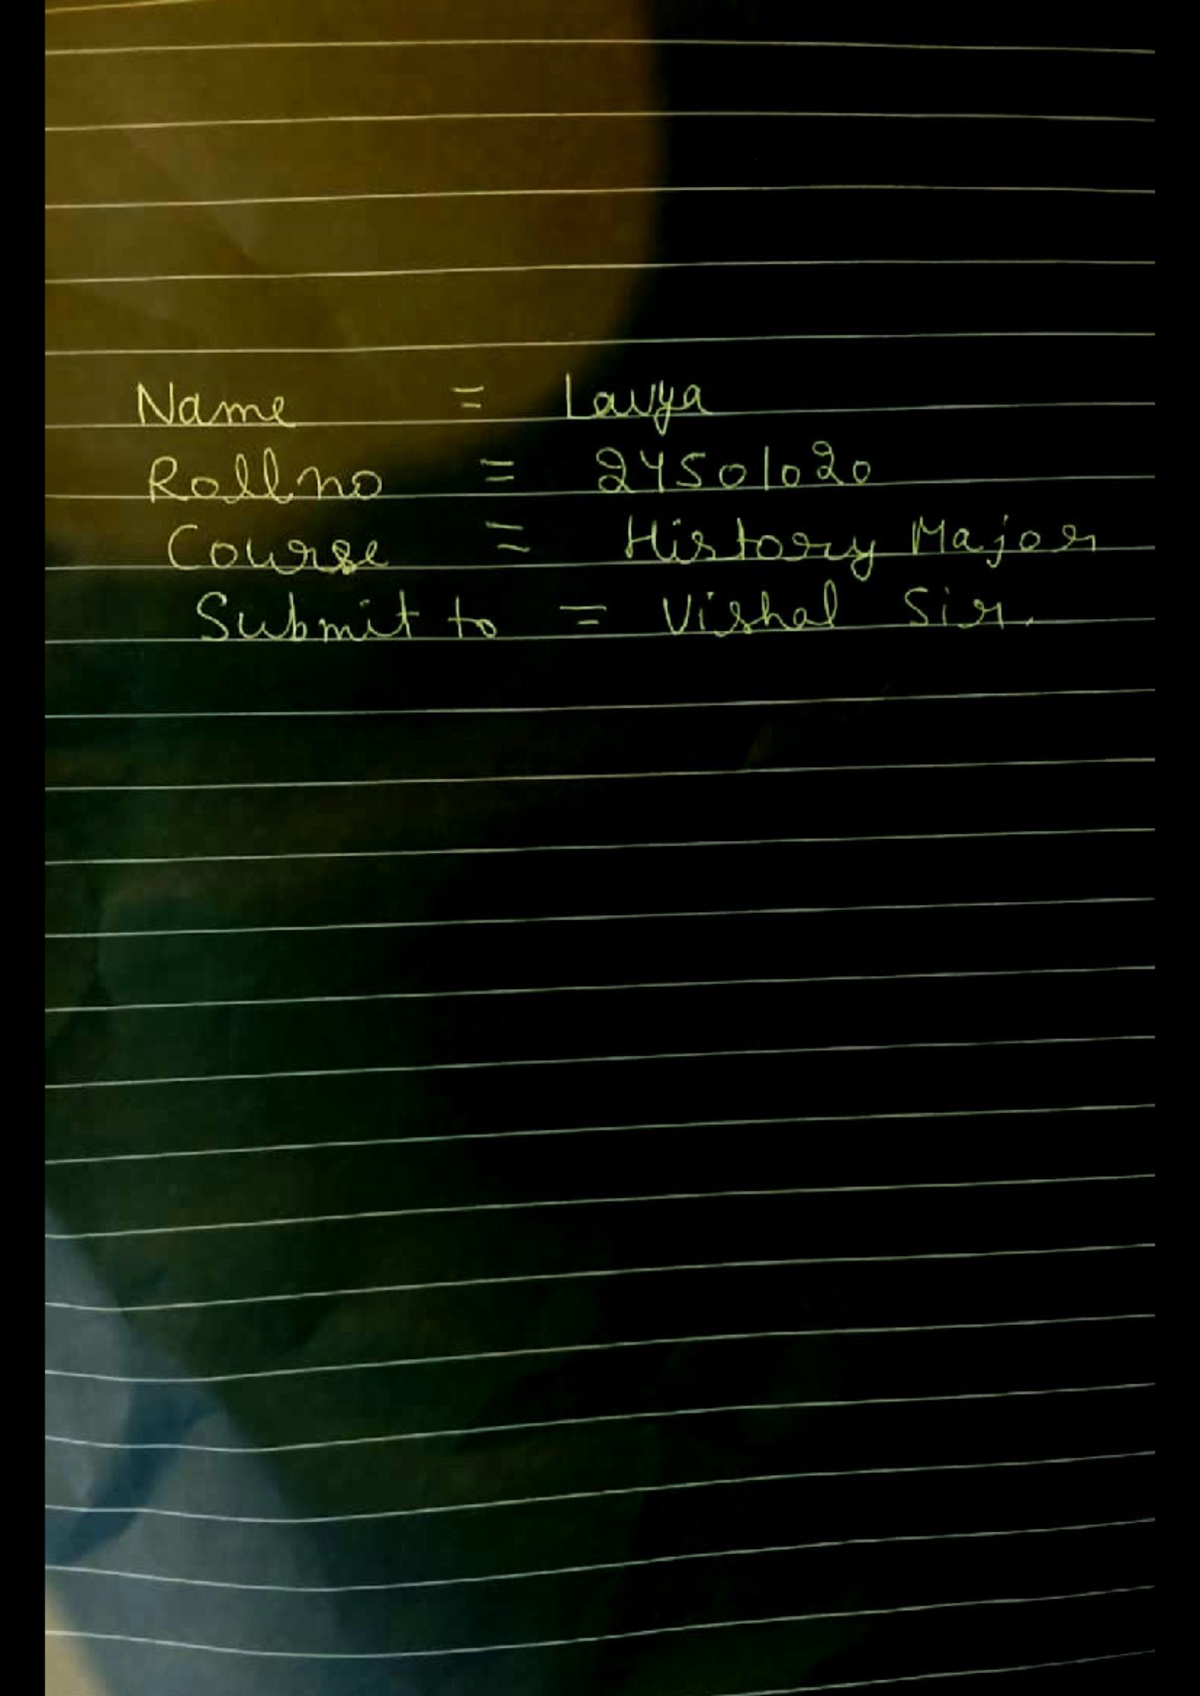 Name = Lavya
Rollno = 24501020
Course = History Major
Submit to = Vishal Sir.